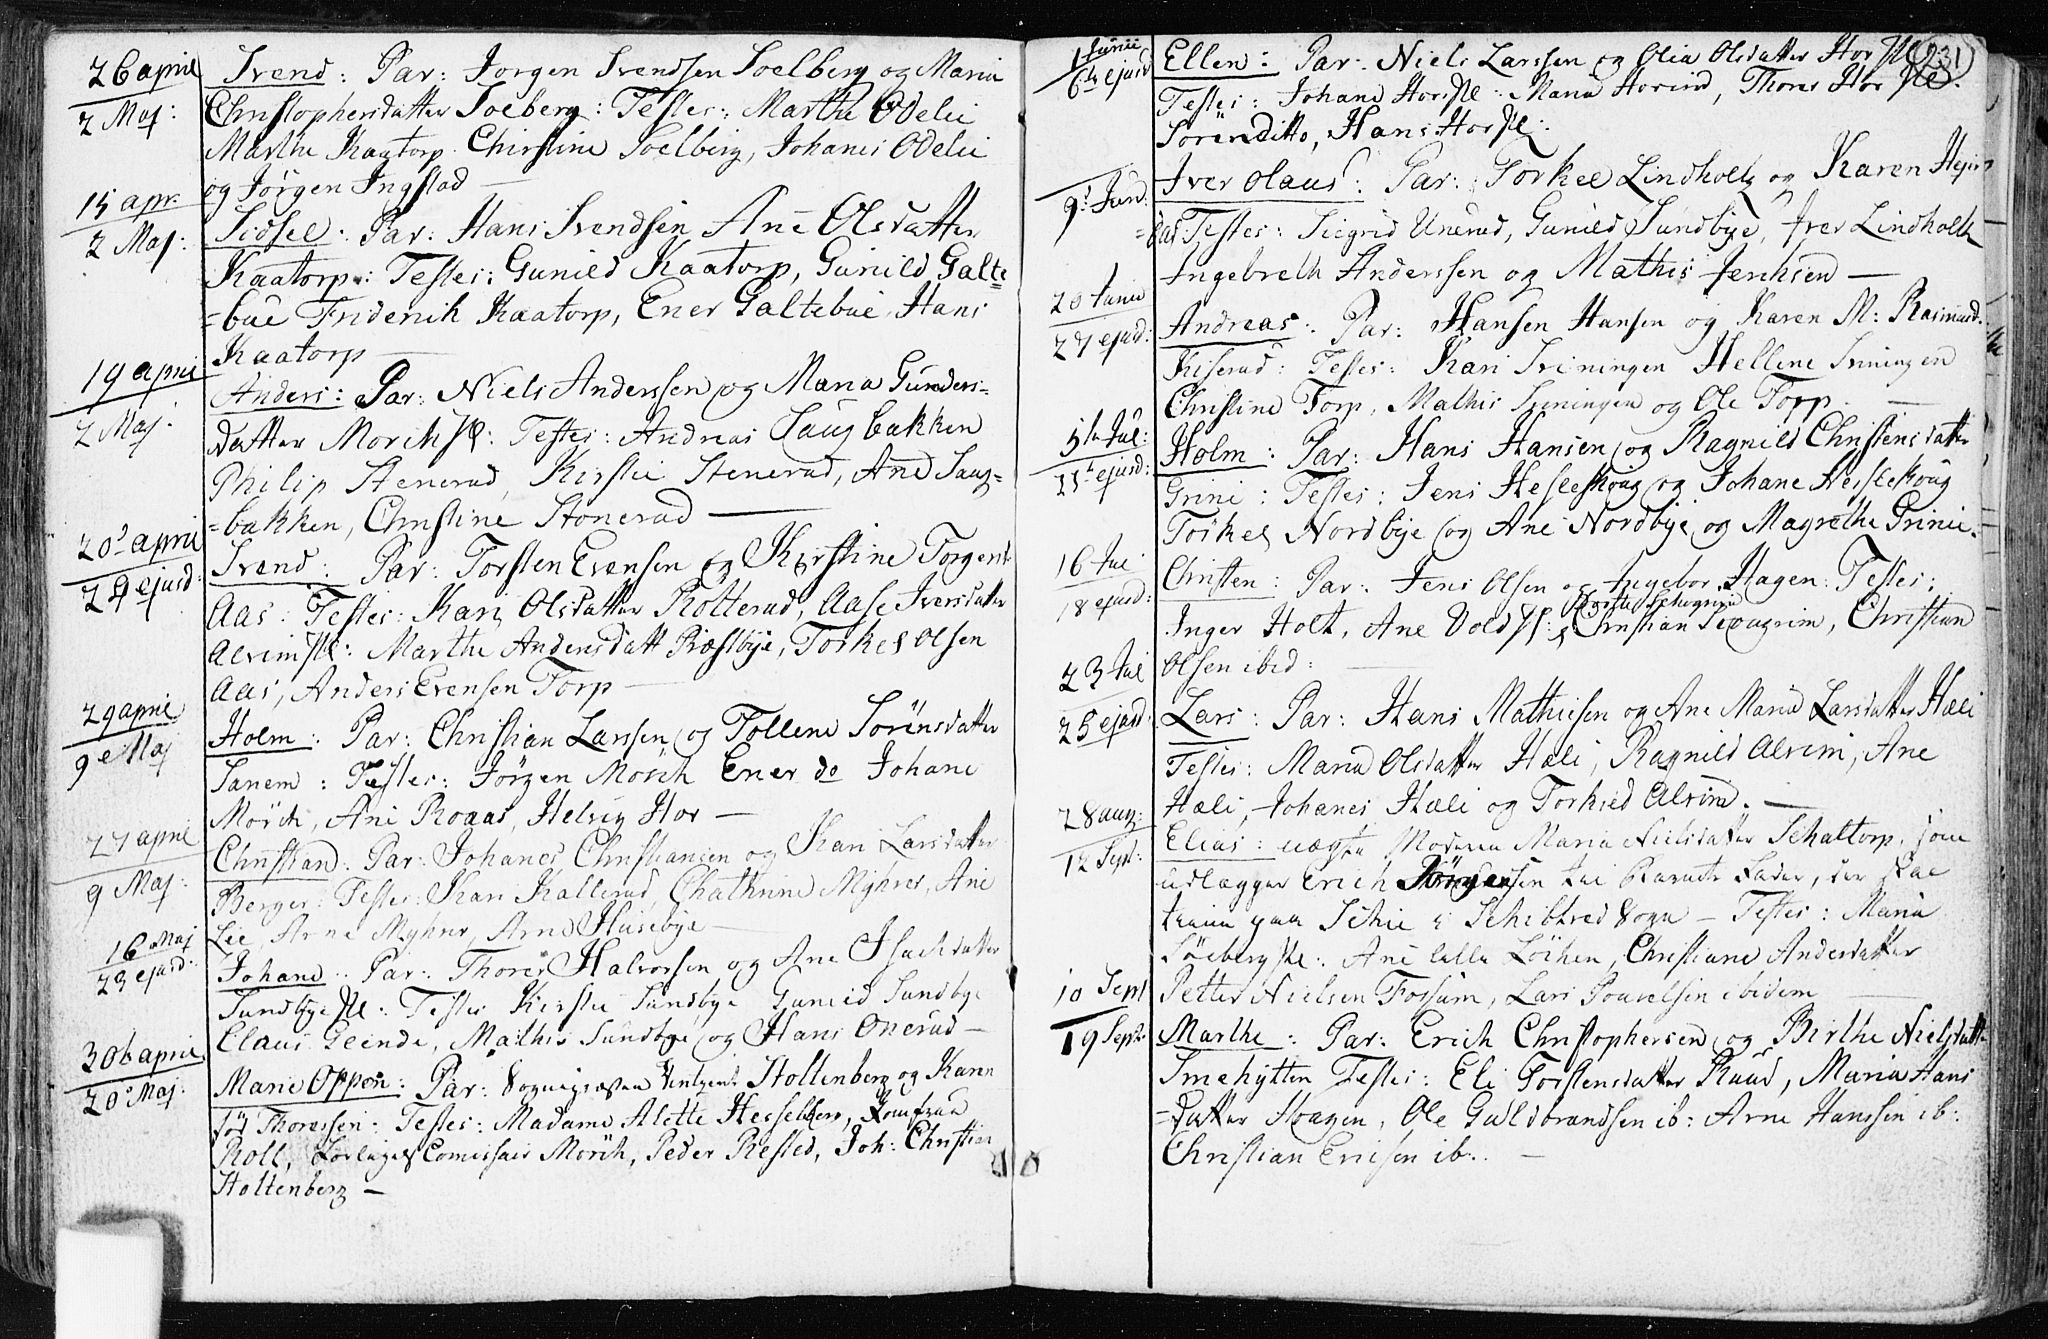 26 april
2 Maj:
Svend: Par: Jorgen Svendsen Soelberg og Maria
Christophersdatter Soeberg: Testes: Marthe Odelie
Marthe Kaatorp Christine Soelberg, Johanes Odelie
og Jörgen Ingstad —
15 apr.
2 Maj:
Sidsel: Par: Hans Svendsen Ane Olsdatter
Kaatorp: Testes: Gunild Kaatorp, Gunild Galte=
=bue Friderich Kaatorp, Ener Galtebue, Hans
Kaatorp —
19 april
2 Maj:
Anders: Par: Niels Anderssen og Maria Gunders=
datter Morch Testes: Andreas Saugbakken
Philip Stenerud, Kirstie Stenerud, Ane Saug=
=bakken, Christine Stonerud —
20 april
29 ejusd:
Svend: Par: Torsten Evensen og Kirstine Torgens
Aas: Testes: Kari Olsdatter Rotterud, Aase Iversdatter
Alvim Marthe Andersdatt Præstbye, Torkel Olsen
Aas, Anders Evensen Torp —
29 april
9 Maj
Holm: Par: Christian Larssen og Tollene Sörensdatter
Sanem: Testes: Jörgen Mörch Ener do Johane
Mörch, Ane Roaas, Helvig Hor —
27 april
9 Maj:
Christian: Par: Johanes Christiansen og Kari Larsdatter
Berger: Testes: Kari Kallerud, Chathrine Myhrer, Ane
Lie, Arne Myhrer, Arne Huusebye —
16 Maj
23 ejusd:
Johane: Par: Thorer Halvorsen og Ane Isachdatter
Sundbye Testes Kirstie Sundbye Gunild Sundbye
Claus Geinde, Mathis Sundbye og Hans Onerud —
30 april
20 Maj:
Marie Oppen: Par: Sognepræsten Ventzent Holtenberg og Karen
fød Thoressen: Testes: Madame Alette Hesselberg, Jomfrue
Roll, Comissair Mörch, Peder Rested, Joh: Christian
Holtenberg —
231
1 Junii
6 ejusd
Ellen: Par: Niels Larssen og Olia Olsdatter Hor
Testes: Johane Hor Maria Hovind, Thorer Hor
Sören ditto, Hans Hor
9 Jun:
Iver Olaus: Par: Torkel Lindholt og Karen Hejer
Testes: Siegrid Unerud, Gunild Sundbye, Iver Lindholt
Ingebreth Anderssen og Mathis Jenhsen —
20 Junii
27 ejusd:
Andreas: Par: Hansen Hansen og Karen M: Rasmusd:
Kiserud: Testes: Kari Sveningen Hellene Sveningen
Christine Torp, Mathis Sveningen og Ole Torp. —
5 Jul:
ejusd:
Holm: Par: Hans Hansen og Ragnild Christensdatter
Grini: Testes: Jens Hesleskoug og Johane Hesleskoug
Torkel Nordbye og Ane Nordbye og Magrethe Grinie.
16 Jul
18 ejusd:
Christen: Par: Jens Olsen og Ingebor Hagen: Testes:
Inger Holt, Ane Vold Christian Scougrim, Christian
Olsen ibid: —
23 Jul
25 ejusd
Lars: Par: Hans Mathiesen og Ane Maria Larsdatter Hæli
Testes: Maria Olsdatter Hæli, Ragnild Alvim, Ane
Hæli, Johanes Hæli og Torkild Alvim. —
28 aug:
12 Sept:
Elias: uægte Moderen Maria Nielsdatter Schattorp, som
udlægger Erich Jörgensen til Barnets Fader, der skal
tiene paa Schie i Schibtved Sogn — Testes: Maria
Söeberg Ane Lökken, Christiane Andersdatter
Petter Nielsen Fossum, Lars Pouvelsen ibidem —
10 Sept
19 Sept:
Marthe: Par: Erich Christophersen og Birthe Nielsdatter
Smehytten Testes: Eli Torstensdatter Ruud, Maria Hans
=datter Haagen, Ole Guldbrandsen ib: Arne Hanssen ib:
Christian Ericsen ib: —